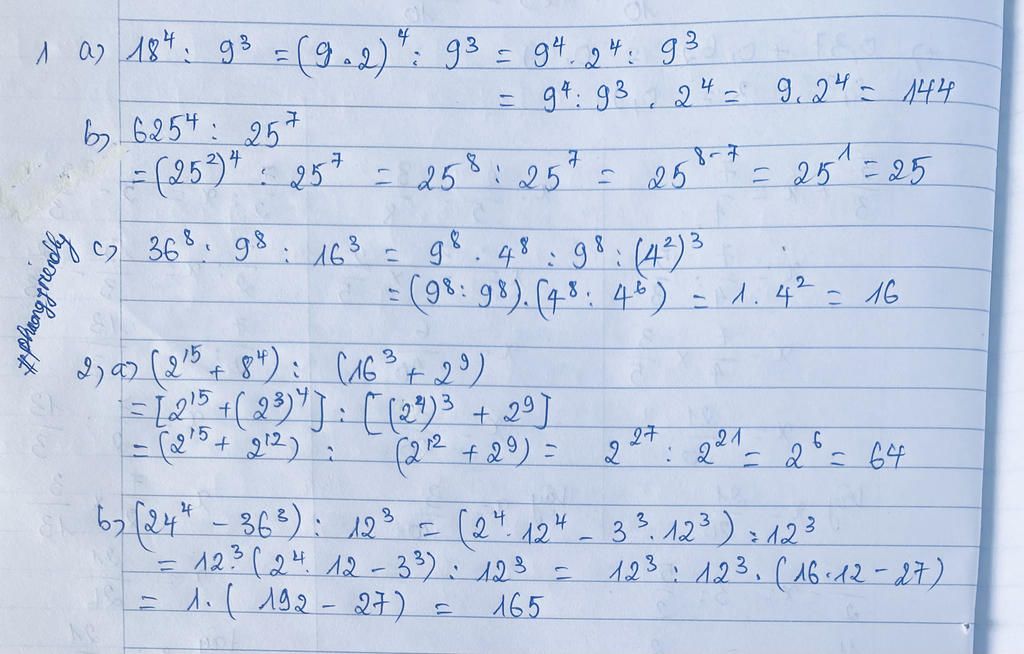 1 a) 18⁴ : 9³ = (9.2)⁴ : 9³ = 9⁴.2⁴ : 9³
= 9⁴ : 9³ . 2⁴ = 9.2⁴ = 144
b) 625⁴ : 25⁷
= (25²)⁴ : 25⁷ = 25⁸ : 25⁷ = 25⁸⁻⁷ = 25¹ = 25
c) 36⁸ : 9⁸ : 16³ = 9⁸ . 4⁸ : 9⁸ : (4²)³
= (9⁸ : 9⁸).(4⁸ : 4⁶) = 1.4² = 16
#phuongfriendly
2, a) (2¹⁵ + 8⁴) : (16³ + 2⁹)
= [2¹⁵ + (2³)⁴] : [(2⁴)³ + 2⁹]
= (2¹⁵ + 2¹²) : (2¹² + 2⁹) = 2²⁷ : 2²¹ = 2⁶ = 64
b) (24⁴ - 36³) : 12³ = (2⁴.12⁴ - 3³.12³) : 12³
= 12³.(2⁴.12 - 3³) : 12³ = 12³ : 12³.(16.12 - 27)
= 1.(192 - 27) = 165